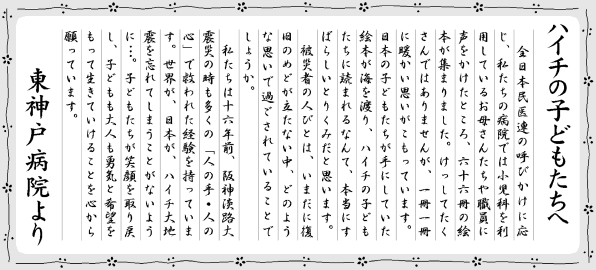 ハイチの子どもたちへ
全日本民医連の呼びかけに応
じ、私たちの病院では小児科を利
用しているお母さんたちや職員に
声をかけたところ、六十六冊の絵
本が集まりました。けっしてたく
さんではありませんが、一冊一冊
に暖かい思いがこもっています。
日本の子どもたちが手にしていた
絵本が海を渡り、ハイチの子ども
たちに読まれるなんて、本当にす
ばらしいとりくみだと思います。
被災者の人びとは、いまだに復
旧のめどが立たない中、どのよう
な思いで過ごされていることで
しょうか。
私たちは十六年前、阪神淡路大
震災の時も多くの「人の手・人の
心」で救われた経験を持っていま
す。世界が、日本が、ハイチ大地
震を忘れてしまうことがないよう
に…。子どもたちが笑顔を取り戻
し、子どもも大人も勇気と希望を
もって生きていけることを心から
願っています。
東神戸病院より